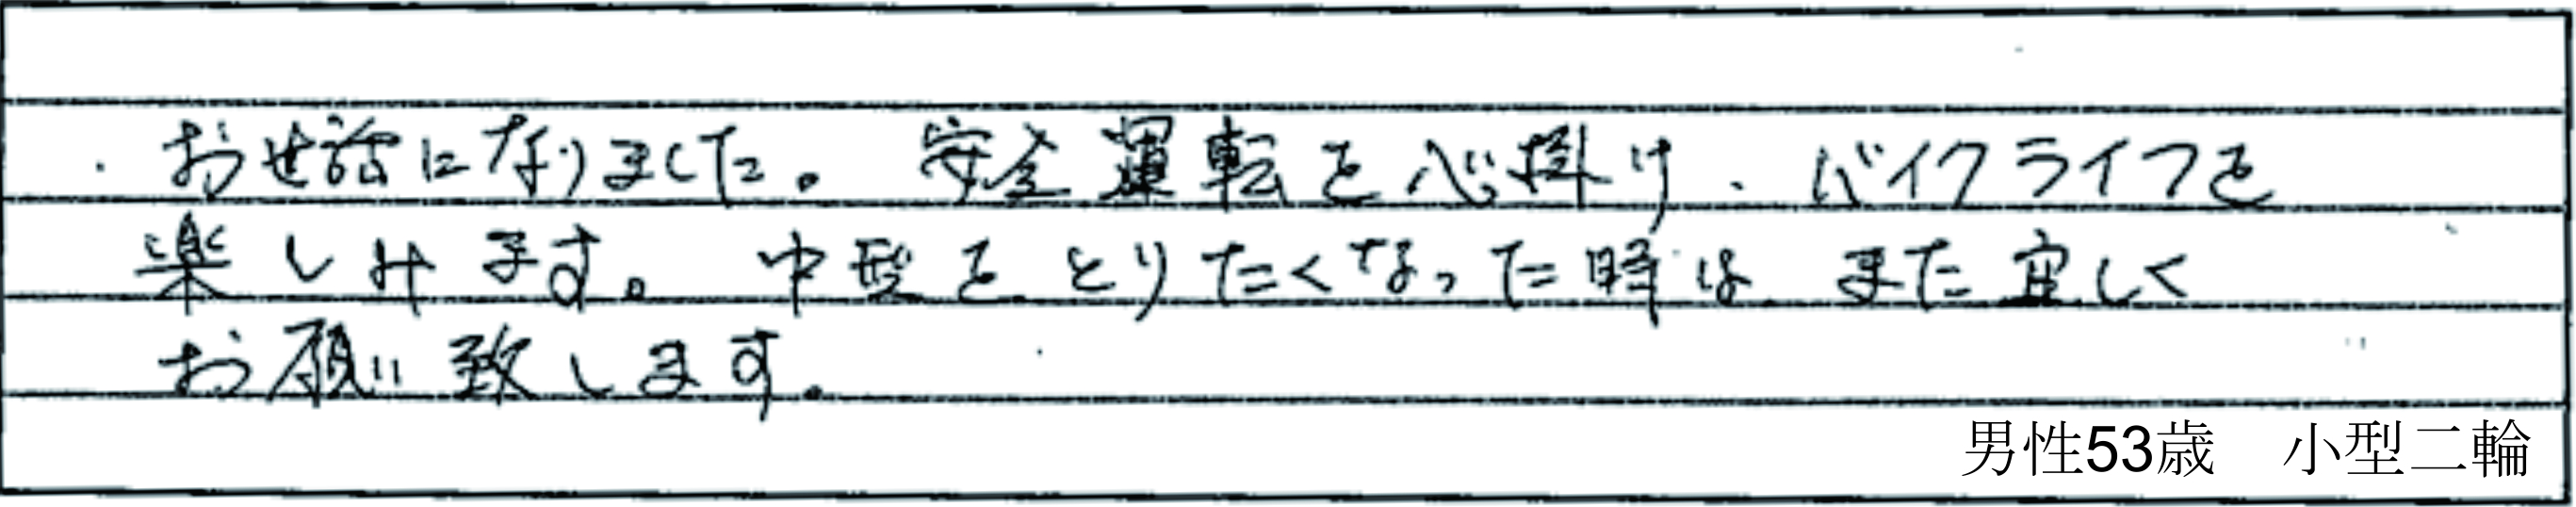 お世話になりました。安全運転を心掛け、バイクライフを
楽しみます。中型をとりたくなった時は、また宜しく
お願い致します。
男性53歳　小型二輪